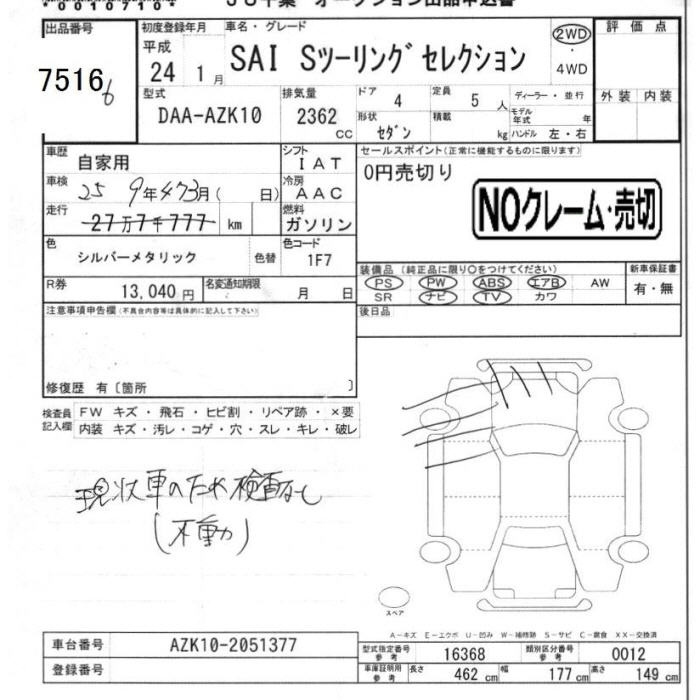 出品番号
7516
6
初度登録年月
平成
24 1月
車名・グレード
SAI Sツーリングセレクション
2WD
・
4WD
評価点
外装 内装
型式
DAA-AZK10
排気量
2362
CC
ドア
4
定員
5 人
形状
セダン
積載
kg
ディーラー・並行
モデル年式 年
ハンドル 左・右
車歴
自家用
シフト
IAT
セールスポイント(正常に機能するものに限ります)
0円売切り
NOクレーム・売切
車検
25 9年 月( 日)
冷房
AAC
走行
27万7千777 km
燃料
ガソリン
色
シルバーメタリック
色替
色コード
1F7
装備品(純正品に限り○をつけてください)
PS PW ABS エアB AW
SR ナビ TV カワ
新車保証書
有・無
R券
13,040円
名変通知期限
月 日
後日品
注意事項申告欄(不具合内容等は具体的に記入して下さい)
修復歴 有〔箇所 〕
検査員記入欄
FW キズ・飛石・ヒビ割・リペア跡・×要
内装 キズ・汚レ・コゲ・穴・スレ・キレ・破レ
現状車のため検査なし
(不動)
スペア
A-キズ E-エクボ U-凹み W-補修跡 S-サビ C-腐食 XX-交換済
車台番号
AZK10-2051377
登録番号
型式指定番号参考
16368
類別区分番号参考
0012
車庫証明用参考
長さ 462 cm
幅 177 cm
高さ 149 cm